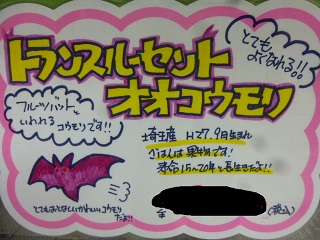 とても
よくなれる!!
トランスルーセント
オオコウモリ
フルーツバットと
いわれる
コウモリです!!
埼玉産 H27.9月生まれ
ごはんは果物です!
寿命15～20年と長生きだよ!!
とてもおとなしいかわいいコウモリ
だよ!!
(税込)